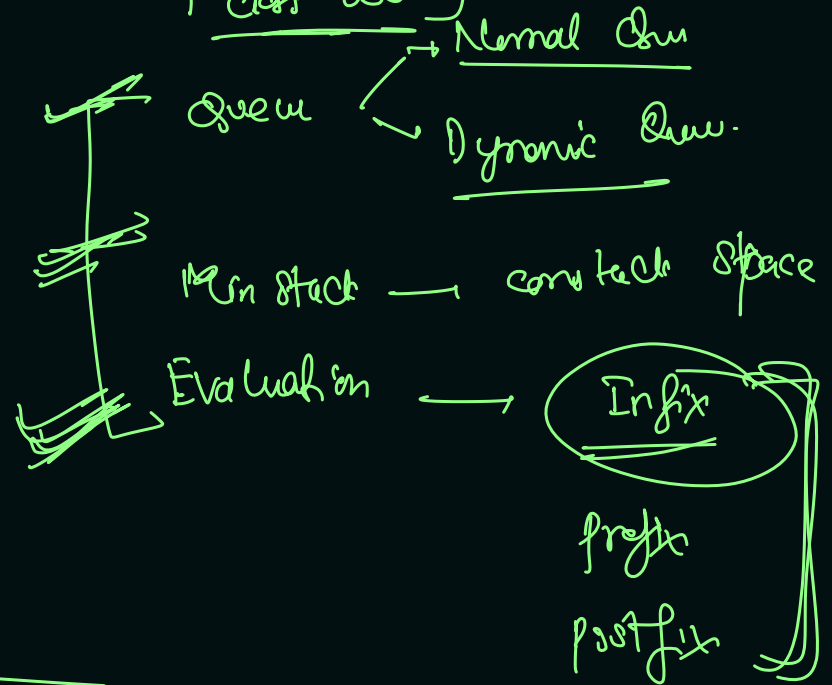 Class
Normal Queu
Queue
Dynamic Queu.
Min stack — constack space
Evaluation → Infix
prefix
postfix